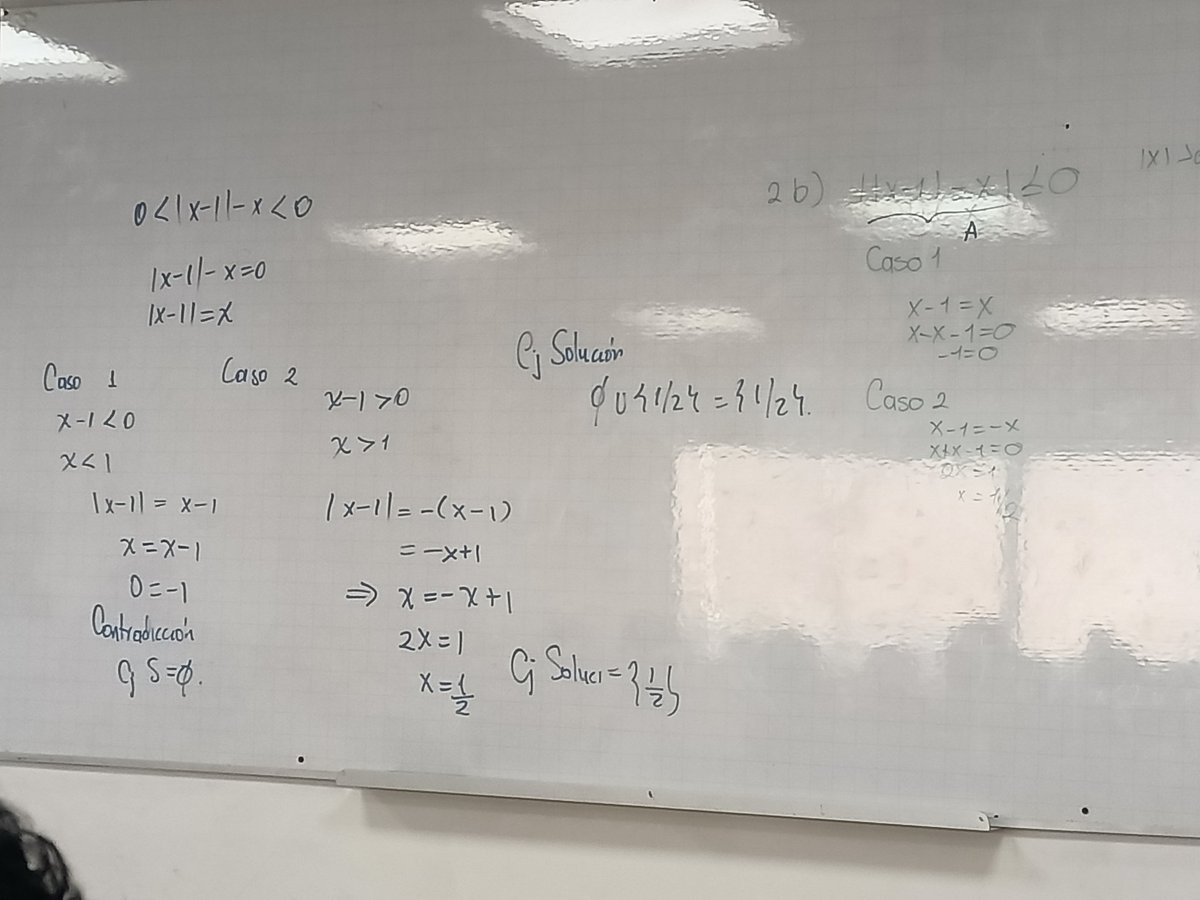 0<|x-1|-x<0
|x-1|-x=0
|x-1|=x
Caso 1
x-1<0
x<1
|x-1| = x-1
x=x-1
0=-1
Contradicción
Cj S=∅.
Caso 2
x-1>0
x>1
|x-1|=-(x-1)
=-x+1
⇒ x=-x+1
2x=1
x=1/2
Cj Soluci={1/2}
Cj Solución
∅ ∪ {1/2} = {1/2}.
2b) ||x-1|-x|≤0
A
Caso 1
x-1=x
x-x-1=0
-1=0
Caso 2
x-1=-x
x+x-1=0
2x=1
x=1/2